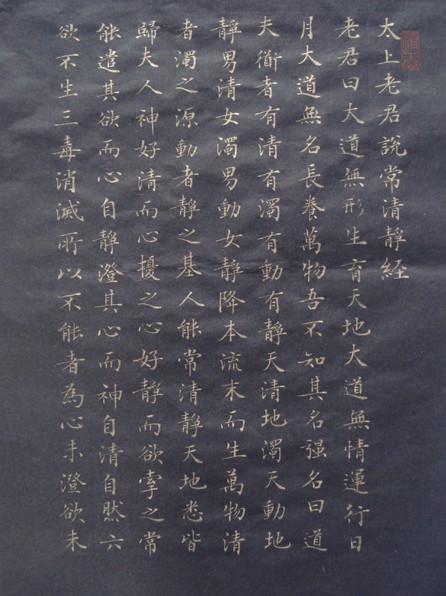 太上老君說常清靜經
老君曰大道無形生育天地大道無情運行日
月大道無名長養萬物吾不知其名強名曰道
夫衜者有清有濁有動有靜天清地濁天動地
靜男清女濁男動女靜降本流末而生萬物清
者濁之源動者靜之基人能常清靜天地悉皆
歸夫人神好清而心擾之心好靜而欲牽之常
能遣其欲而心自靜澄其心而神自清自然六
欲不生三毒消滅所以不能者為心未澄欲未